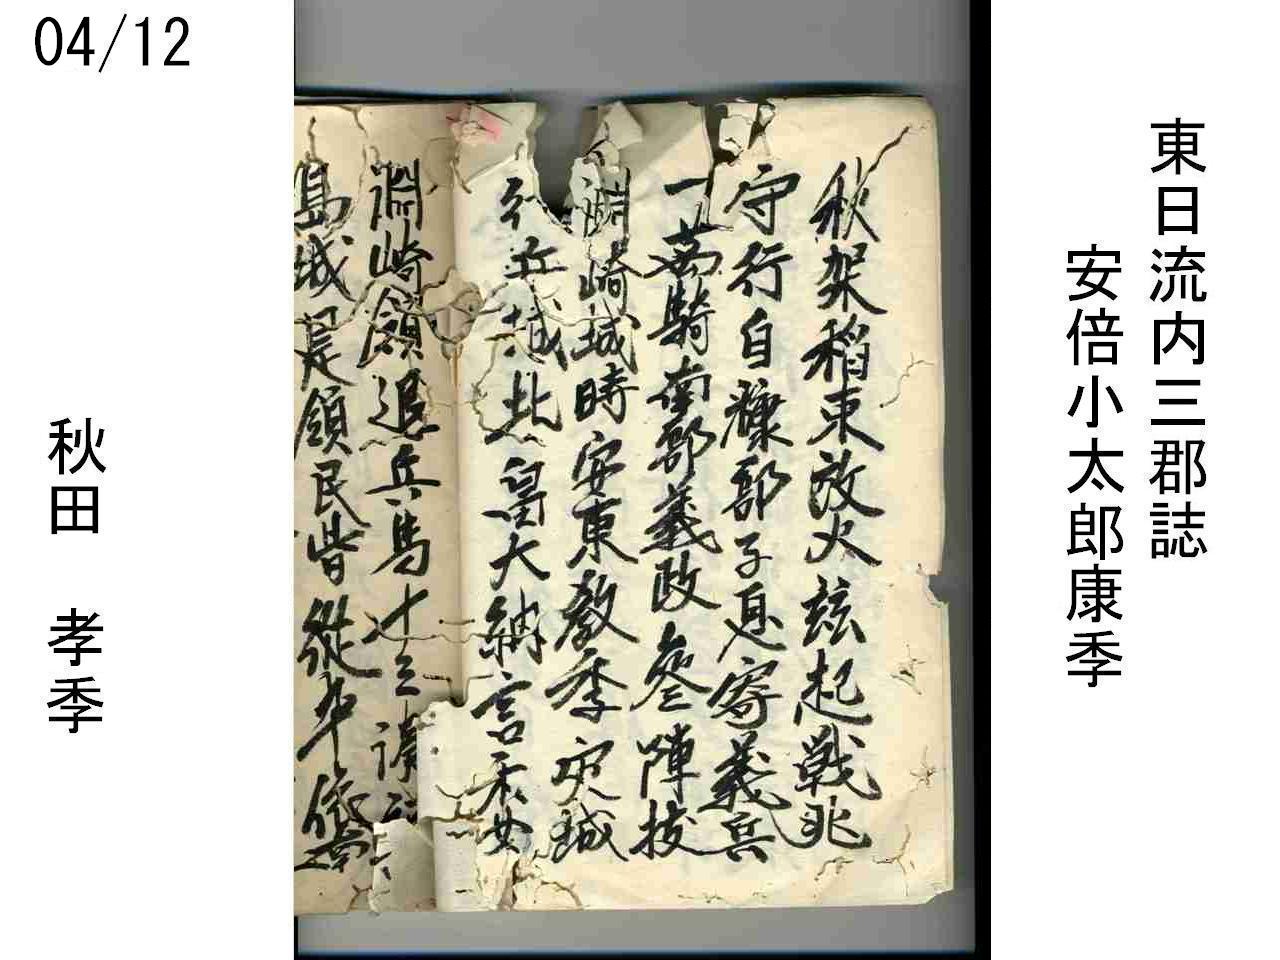 04/12
東日流内三郡誌
安倍小太郎康季
秋架稻束放火玆起戦兆
守行自糠部子息寄義兵
一萬騎南部義政參陣抜
淵崎城時安東教季灾城
行丘城北畠大納言
淵崎領退兵馬十三湊
島城是領民皆従
秋田　孝季